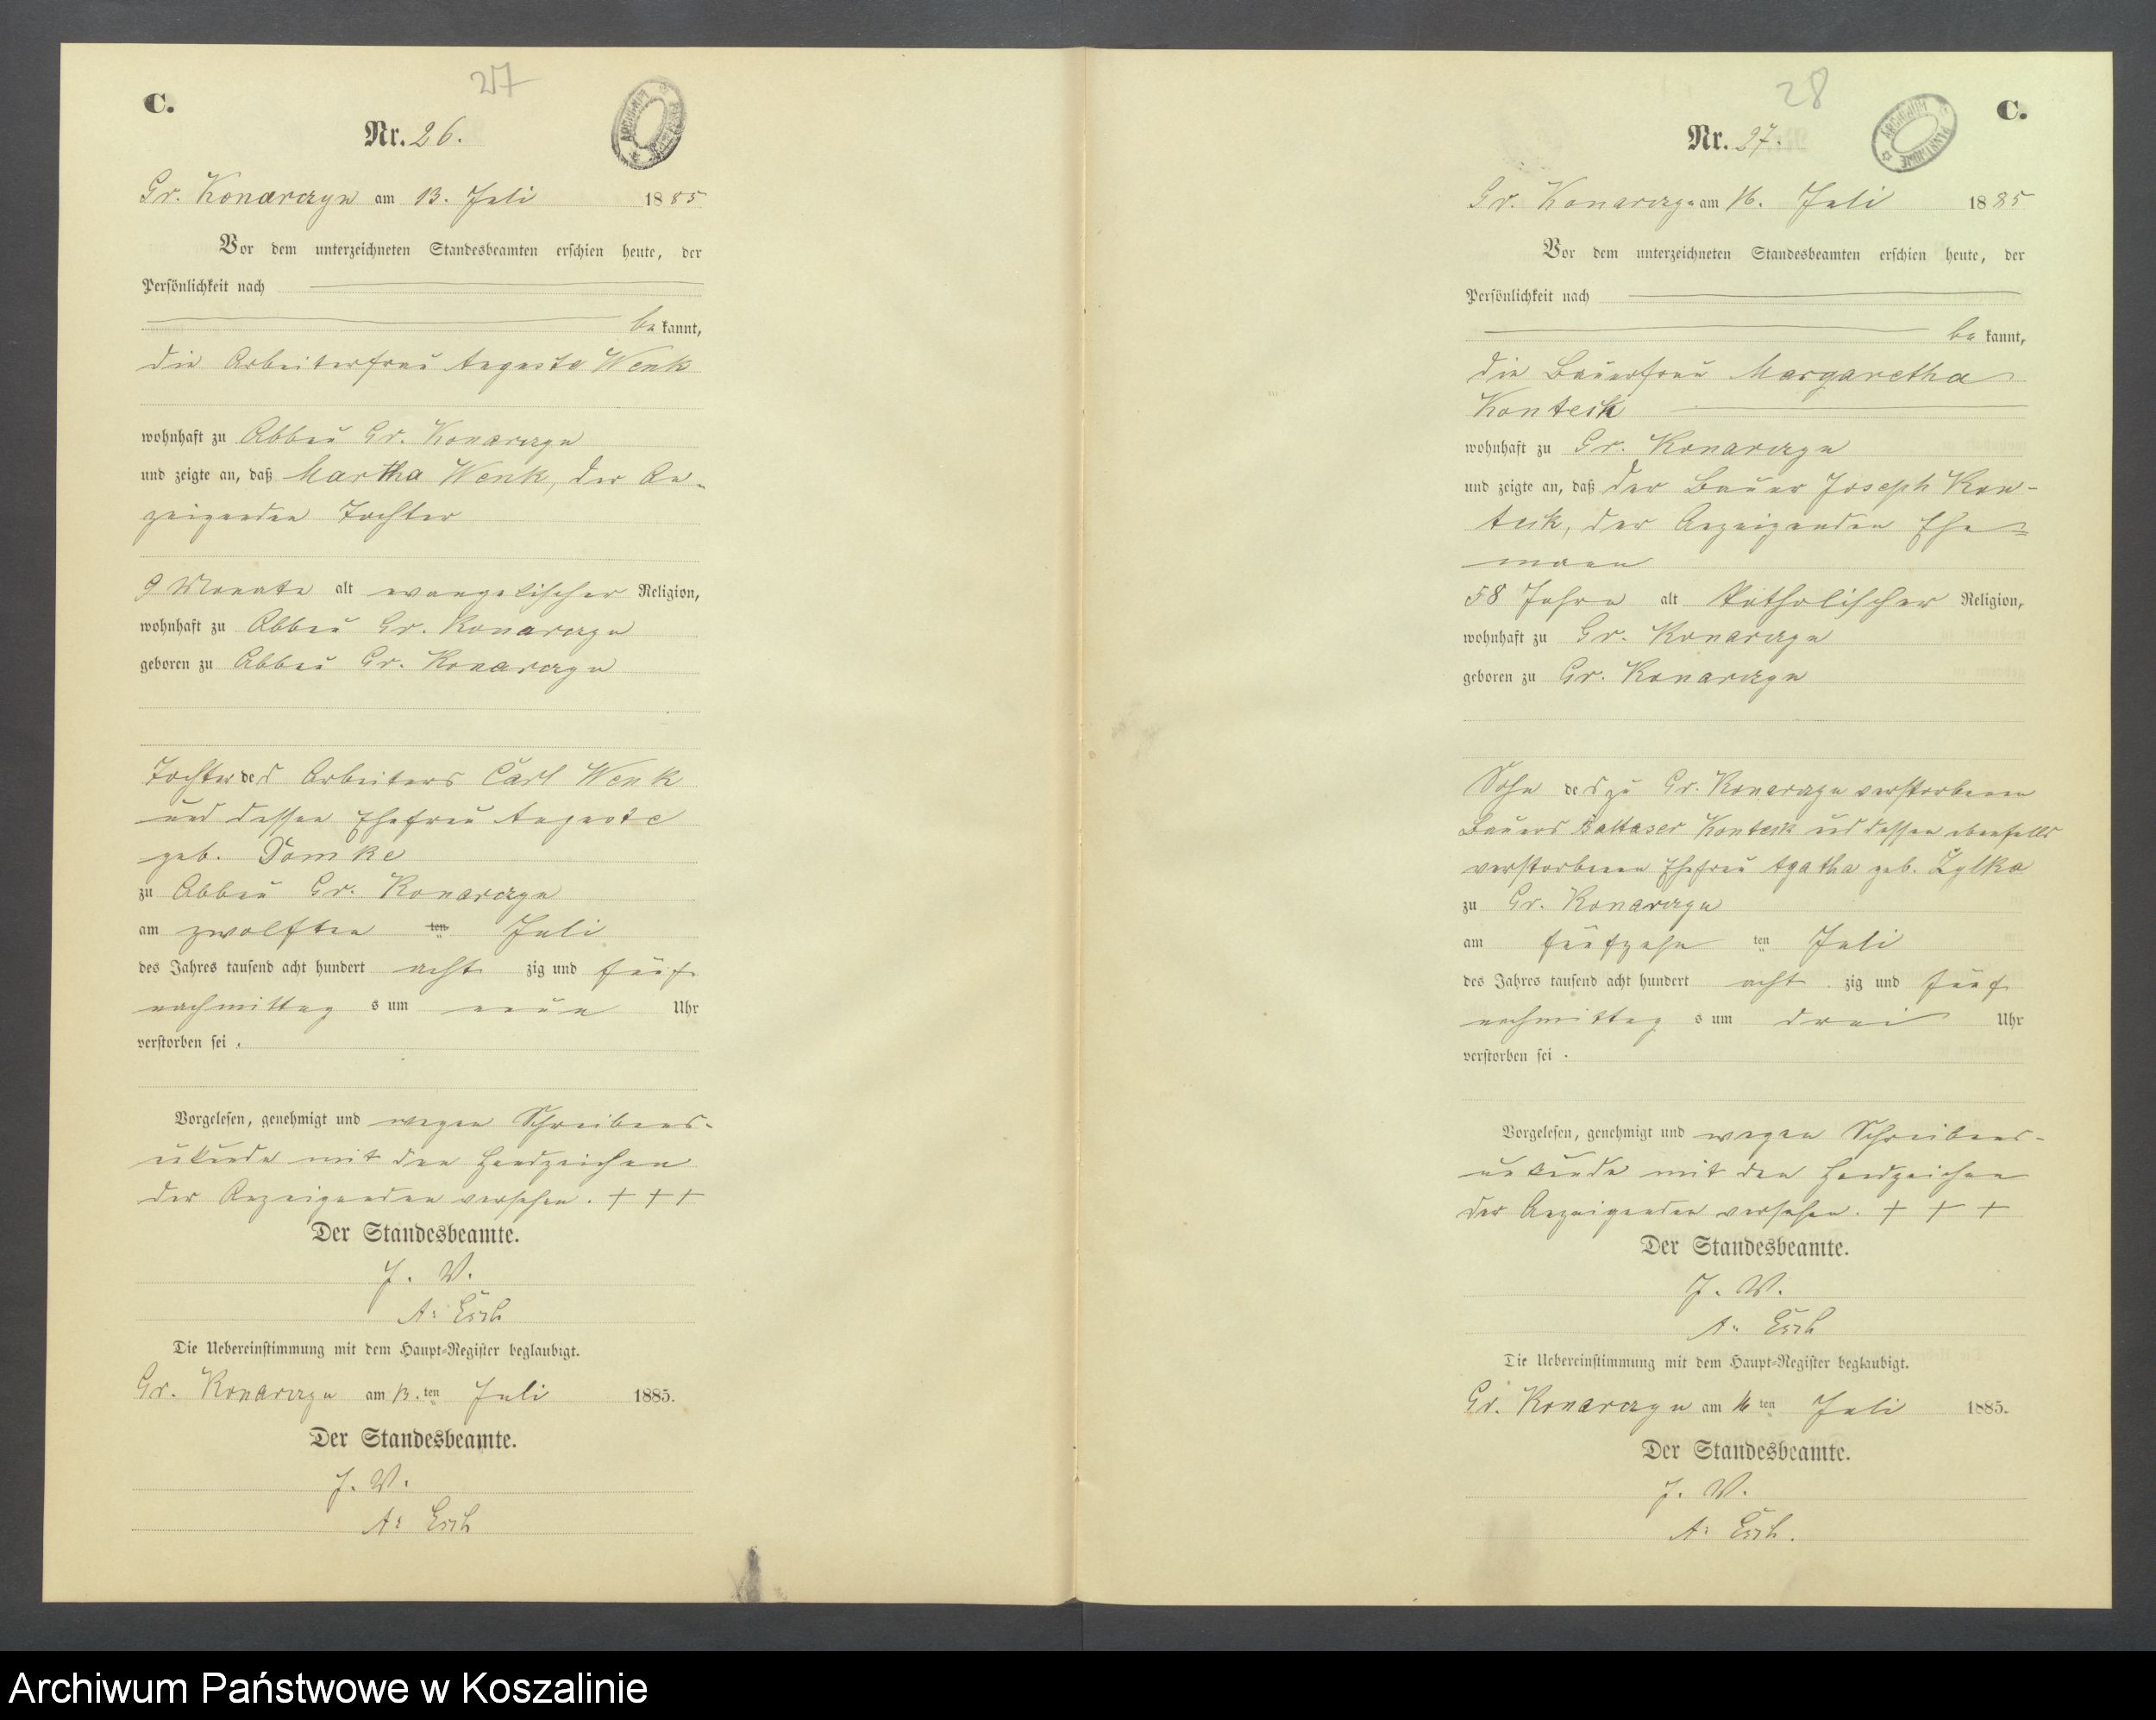 27
C.
ARCHIWUM PAŃSTWOWE
Nr. 26.
Gr. Konarczyn am 13. Juli 1885
Vor dem unterzeichneten Standesbeamten erschien heute, der
Persönlichkeit nach
be kannt,
die Arbeiterfrau Auguste Wenk
wohnhaft zu Abbau Gr. Konarczyn
und zeigte an, daß Martha Wenk, der An-
zeigenden Tochter
9 Monate alt evangelischer Religion,
wohnhaft zu Abbau Gr. Konarczyn
geboren zu Abbau Gr. Konarczyn
Tochter des Arbeiters Carl Wenk
und dessen Ehefrau Auguste
geb. Domke
zu Abbau Gr. Konarczyn
am zwölften ten Juli
des Jahres tausend acht hundert acht zig und fünf
nachmittag s um neun Uhr
verstorben sei.
Vorgelesen, genehmigt und wegen Schreibens-
unkunde mit den Handzeichen
der Anzeigenden versehen. + + +
Der Standesbeamte.
J. V.
A. Esch
Die Uebereinstimmung mit dem Haupt-Register beglaubigt.
Gr. Konarczyn am 13. ten Juli 1885.
Der Standesbeamte.
J. V.
A. Esch
28
C.
ARCHIWUM PAŃSTWOWE
Nr. 27.
Gr. Konarczyn am 16. Juli 1885
Vor dem unterzeichneten Standesbeamten erschien heute, der
Persönlichkeit nach
be kannt,
die Bauerfrau Margaretha
Konteck
wohnhaft zu Gr. Konarczyn
und zeigte an, daß der Bauer Joseph Kon-
teck, der Anzeigenden Ehe=
mann
58 Jahre alt katholischer Religion,
wohnhaft zu Gr. Konarczyn
geboren zu Gr. Konarczyn
Sohn des zu Gr. Konarczyn verstorbenen
Bauers Baltaser Konteck und dessen ebenfalls
verstorbenen Ehefrau Agatha geb. Zylka
zu Gr. Konarczyn
am fünfzehn ten Juli
des Jahres tausend acht hundert acht zig und fünf
nachmittag s um drei Uhr
verstorben sei.
Vorgelesen, genehmigt und wegen Schreibens-
unkunde mit den Handzeichen
der Anzeigenden versehen. + + +
Der Standesbeamte.
J. V.
A. Esch
Die Uebereinstimmung mit dem Haupt-Register beglaubigt.
Gr. Konarczyn am 16 ten Juli 1885.
Der Standesbeamte.
J. V.
A. Esch.
Archiwum Państwowe w Koszalinie